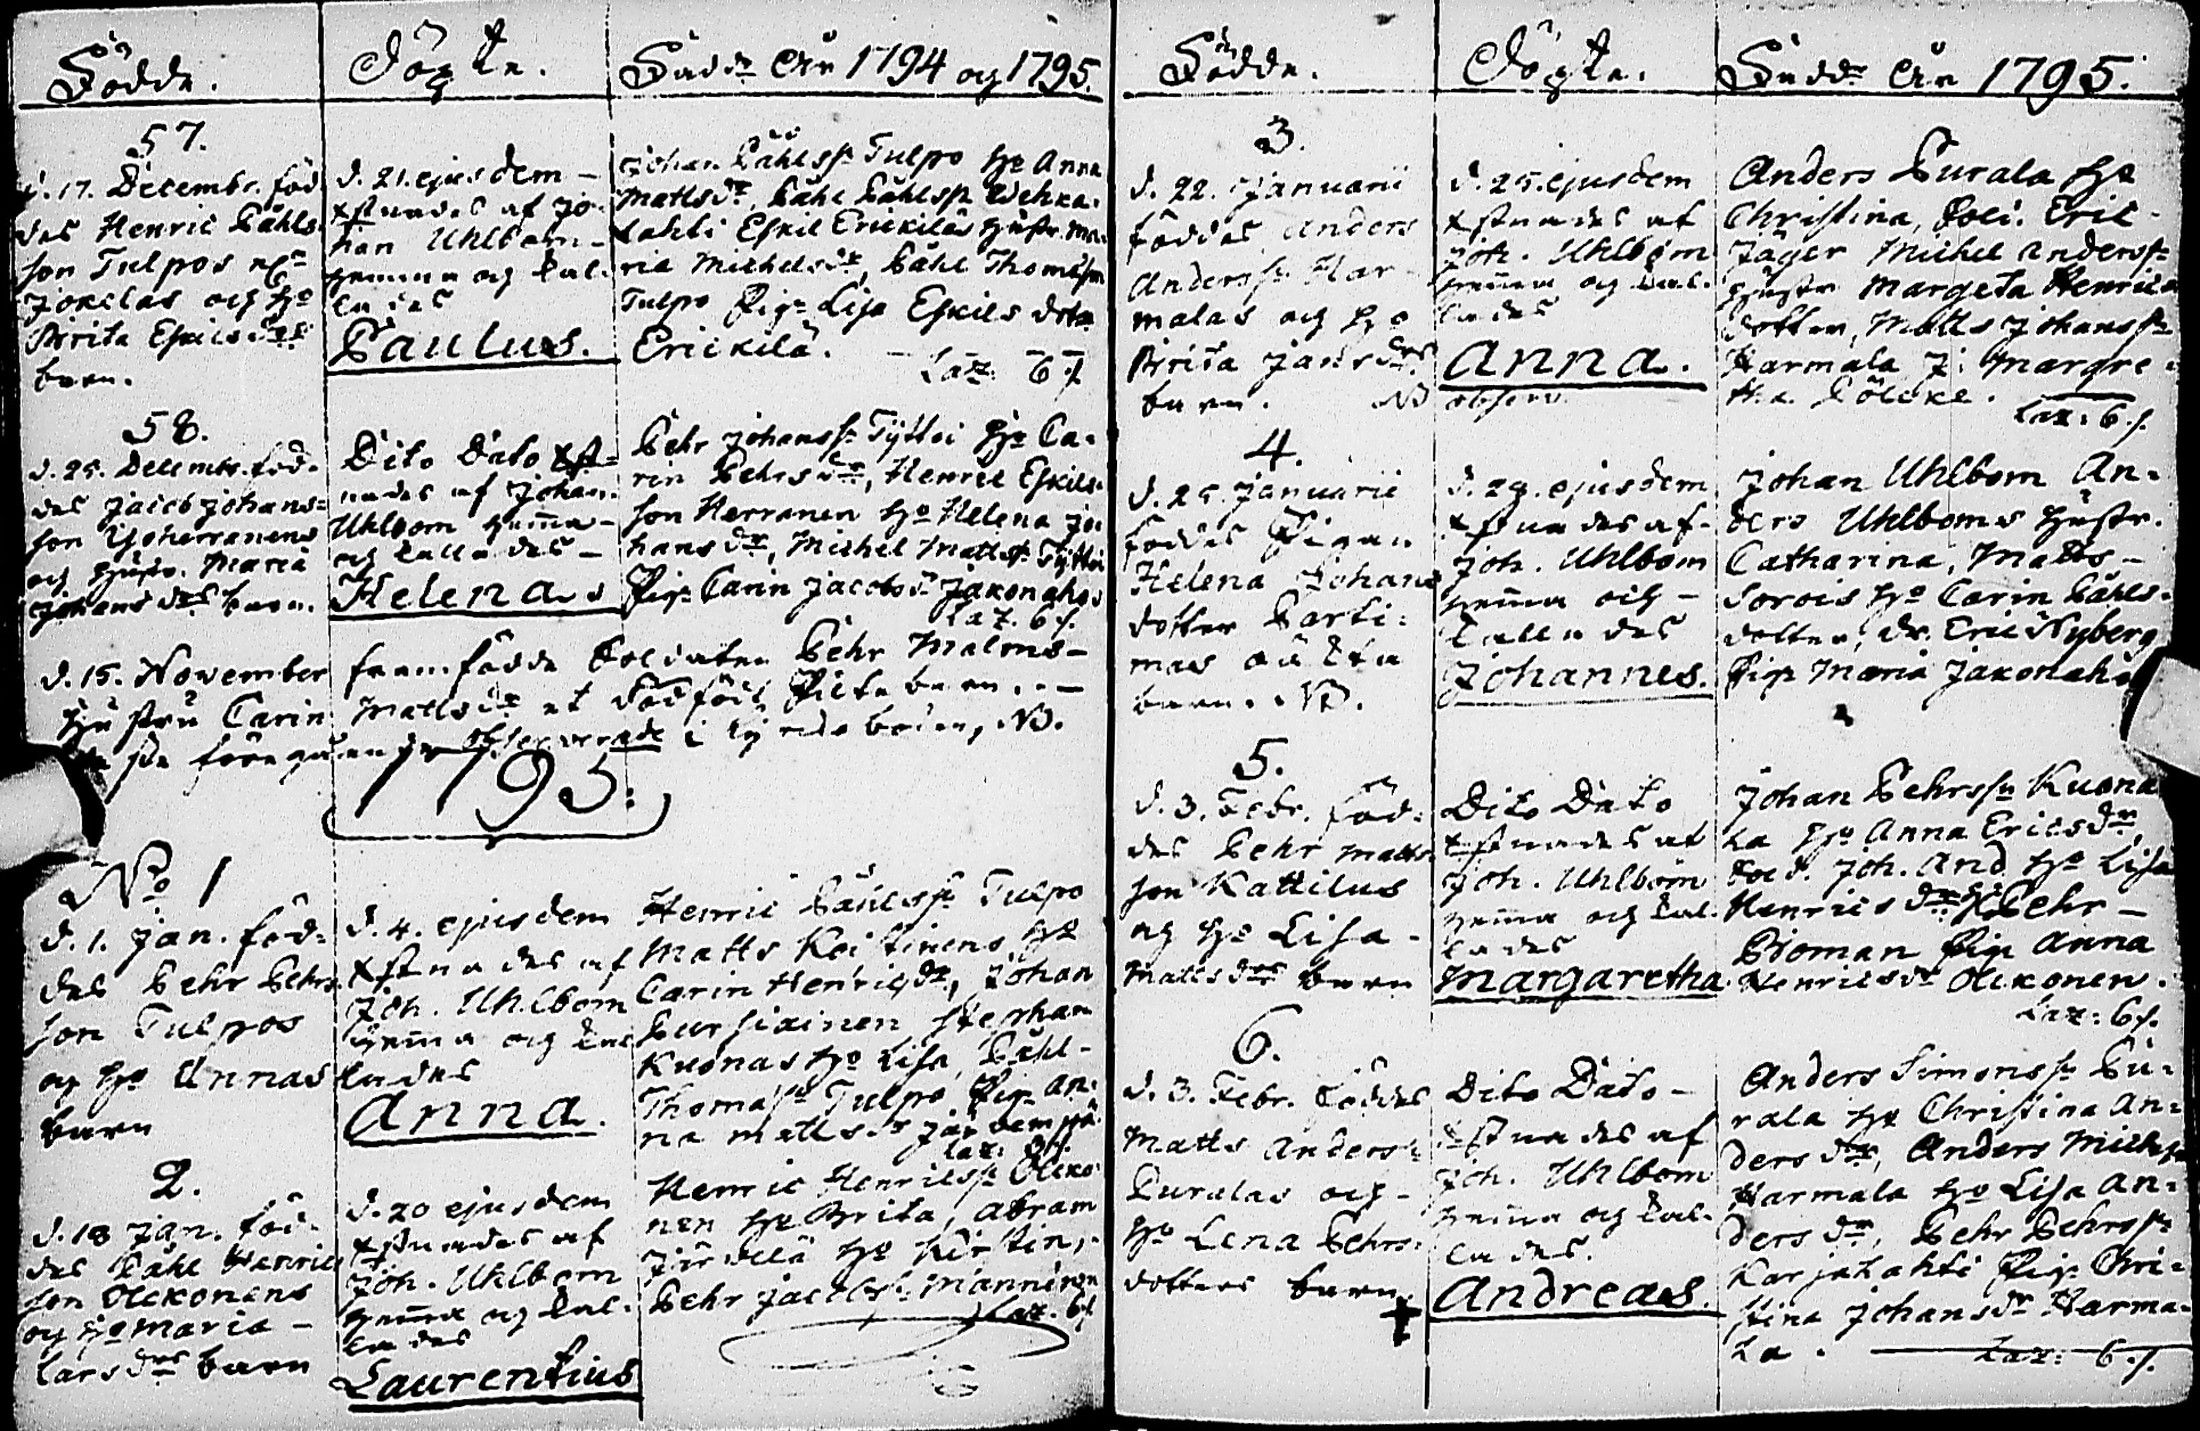 Födde.
Döpte.
Fadd: År 1794 og 1795.
57.
d. 17. Decembr. föd
des Henric Påhls
son Tulpos
Jokelas och H:o
Brita Eskilsd:rs
barn.
d. 21. ejusdem –
xstnades af Jo-
han Uhlbom –
hemma og kal-
lades
Paulus.
Johan Påhlss: Tulpo H:o Anna
Mattsd:r, Påhl Påhlss:
lahti Eskil Erickiläs Hustr. Ma-
ria Michelsd:r, Påhl Thomass:
Tulpo Pig: Lisa Eskils dotr
Erickilä. –
Laz: 6 f.
58.
d. 25. Decembr. föd-
des Jacob Johans=
son Herranens
og Hustr. Maria
Johansd:rs barn.
Dito Dato xst=
nades af Johan
Uhlbom hemma –
og kallades –
Helena
Pehr Johanss: Tyttoi H:o Ca-
rin Pehrsd:r, Henric Eskils-
son Herranen H:o Helena Jo-
hansd:r, Michel Matts: Tyttoi
Pig: Carin Jacobsd: Jakonaho
Laz. 6 f.
d. 15. November framfödde Soldaten Pehr Malms –
Hustru Carin Mattsd:r et dödfödt Picke barn. –
föregående observerade i kyrcko boken, NB.
1795.
No 1
d. 1. Jan. föd-
des Pehr Pehrs
son Tulpos
og H:o Annas
barn
d. 4. ejusdem
xstnades af
Joh. Uhlbom
hemma og kal
lades
Anna.
Henric Påhlss: Tulpo
Matts Koistinens H:o
Carin Henricsd:r, Johan
Pursiainen Stephan
Kuonas H:o Lisa, Påhl –
Thomas: Tulpo Pig: An-
na Mattsd:r
Laz:
2.
d. 18 Jan. föd-
des Påhl Henric
son Olckonens
og H:o Maria –
Larsd:rs barn
d. 20 ejusdem
xstnades af
Joh. Uhlbom
hemma og kal-
lades
Laurentius
Henric Henricss: Olcko
nen H:o Brita, Abram
H:o Kirstin,
Pehr Jacobs: Manninen
Laz. 6 f
Födde.
Döpte.
Fadd: År 1795.
3.
d. 22. Januarii
föddes Anders
Anderss: Har-
malas og H:o
Brita Jansd:rs
barn. NB
d. 25. ejusdem
xstnades af
Joh. Uhlbom
hemma og kal-
lades
Anna.
observ.
Anders Purala H:o
Christina, Sold. Eric
Jäger Michel Anderss:
Hustr Margeta Henrics
dotter, Matts Johanss:
Harmala J: Margre-
tha Pölcke.
Laz: 6 f.
4.
d. 25. Januarii
föddes Pigan
Helena Johans
dotter Parti-
mas oäkta
barn. NB.
d. 29. ejusdem
xstnades af
Joh. Uhlbom
hemma och –
kallades
Johannes.
Johan Uhlbom An-
ders Uhlboms Hustr.
Catharina, Matts –
Sorois H:o Carin Påhls-
dotter, dr. Eric Nyberg
Pig: Maria Jakonaho
5.
d. 3. Febr. föd-
des Pehr Matts
son Kattilus
og H:o Lisa –
Mattsd:rs barn
Dito Dato
xstnades af
Joh. Uhlbom
hemma og kal-
lades
Margaretha.
Johan Pehrss: Kuona
la H:o Anna Ericsd:r,
Sold. Joh. And. H:o Lisa
Henricsd:r, Pehr –
Boman Pig: Anna
Henricsd:r Olckonen.
Laz: 6 f.
6.
d. 3. Febr. föddes
Matts Anders-
Puralas och –
H:o Lena Pehrs-
dotters barn.
Dito Dato –
xstnades af
Joh. Uhlbom
hemma og kal-
lades.
Andreas.
Anders Simonss: Pu-
rala H:o Christina An-
dersd:r, Anders Michelss
Harmala H:o Lisa An-
dersd:r, Pehr Pehrss:
Karjalahti Pig: Chri-
stina Johansd:r Harma-
la.
Laz: 6 f.